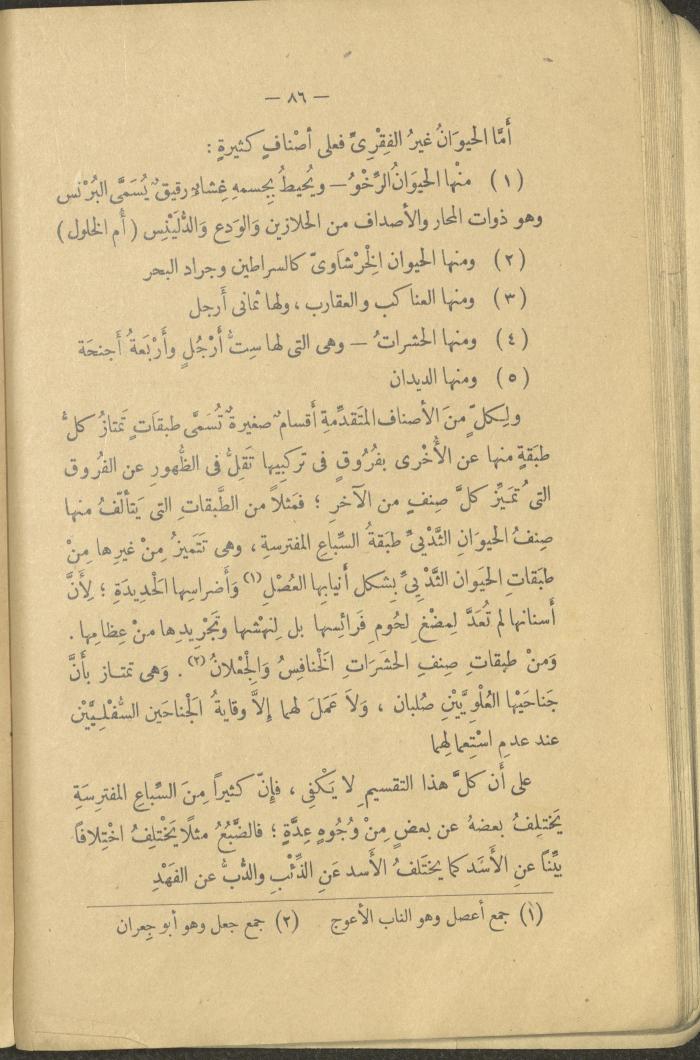 — ٨٦ —
أَمَّا الحيوَانُ غيرُ الفِقْرِىِّ فعلى أصْنافٍ كثيرةٍ :
(١) منْها الحيوَانُ الرِّخْوُ — ويُحيطُ بِجسمهِ غِشاءٌ رقيقٌ يُسَمَّى البُرْنس
وهو ذوات المحار والأصداف من الحلازين وَالوَدع وَالدُّلَيْنِس ( أُم الخلول )
(٢) ومنها الحيوان الِخْرْشَاوىّ كالسراطين وجراد البحر
(٣) ومنها العناكب والعقارب ، ولها ثمانى أَرجل
(٤) ومنها الحشراتُ — وهى التى لها سِتُّ أَرْجُلٍ وأَرْبَعةُ أَجنحَة
(٥) ومنها الديدان
ولِكلّ مِنَ الأصناف المتَقدِّمةِ أَقسامٌ صغيرةٌ تُسَمَّى طبقَاتٍ تَمتازُ كلُّ
طبَقةٍ منها عن الأُخْرى بفُرُوقٍ فى تركيبِها تَقِلُّ فى الظُّهورِ عن الفُرُوق
التى تُميِّز كلَّ صِنفٍ من الآخرِ ؛ فمَثلاً من الطَّبقاتِ التى يَتألّفُ منها
صِنفُ الحيوَانِ الثَّدْيىِّ طبَقةُ السِّباعِ المفترسةِ ، وهى تَتَميزُ مِنْ غيرِها مِنْ
طبقاتِ الحيَوان الثَّدْيىِّ بِشكل أَنيابِها العُصْلِ (١) وَأَضراسِها الَحْدِيدَةِ ؛ لِأَنَّ
أَسنانها لم تُعَدَّ لِمضْغِ لحُومِ فَرائِسِها بل لِنهْشها وتَجْرِيدِها منْ عِظامِها .
وَمنْ طبقاتِ صِنفِ الحشَرَاتِ الَخْنافِسُ وَالِجْعْلانُ (٢) . وَهى تمتاز بأَنَّ
جَناحَيْها العُلْوِيَّيْنِ صُلبان ، وَلاَ عَمَلَ لهما إِلاَّ وقايةُ الَجْناحَين السُّفْلِيَّيْنِ
عند عدمِ اسْتِعمالِهما
على أَن كلَّ هذا التقسيم لا يَكْفِى ، فإِنّ كثيراً مِنَ السِّباعِ المفترِسَةِ
يَختلِفُ بعضهُ عن بعضٍ مِنْ وُجُوهٍ عِدَّةٍ ؛ فالضَّبُعُ مثلاً يَخْتْلِفُ اخْتِلافاً
بيِّناً عنِ الأَسَد كما يختَلفُ الأَسد عَنِ الذِّئْبِ والدُّبُّ عن الفَهْدِ
(١) جمع أعصل وهو الناب الأعوج (٢) جمع جعل وهو أبو جِعران